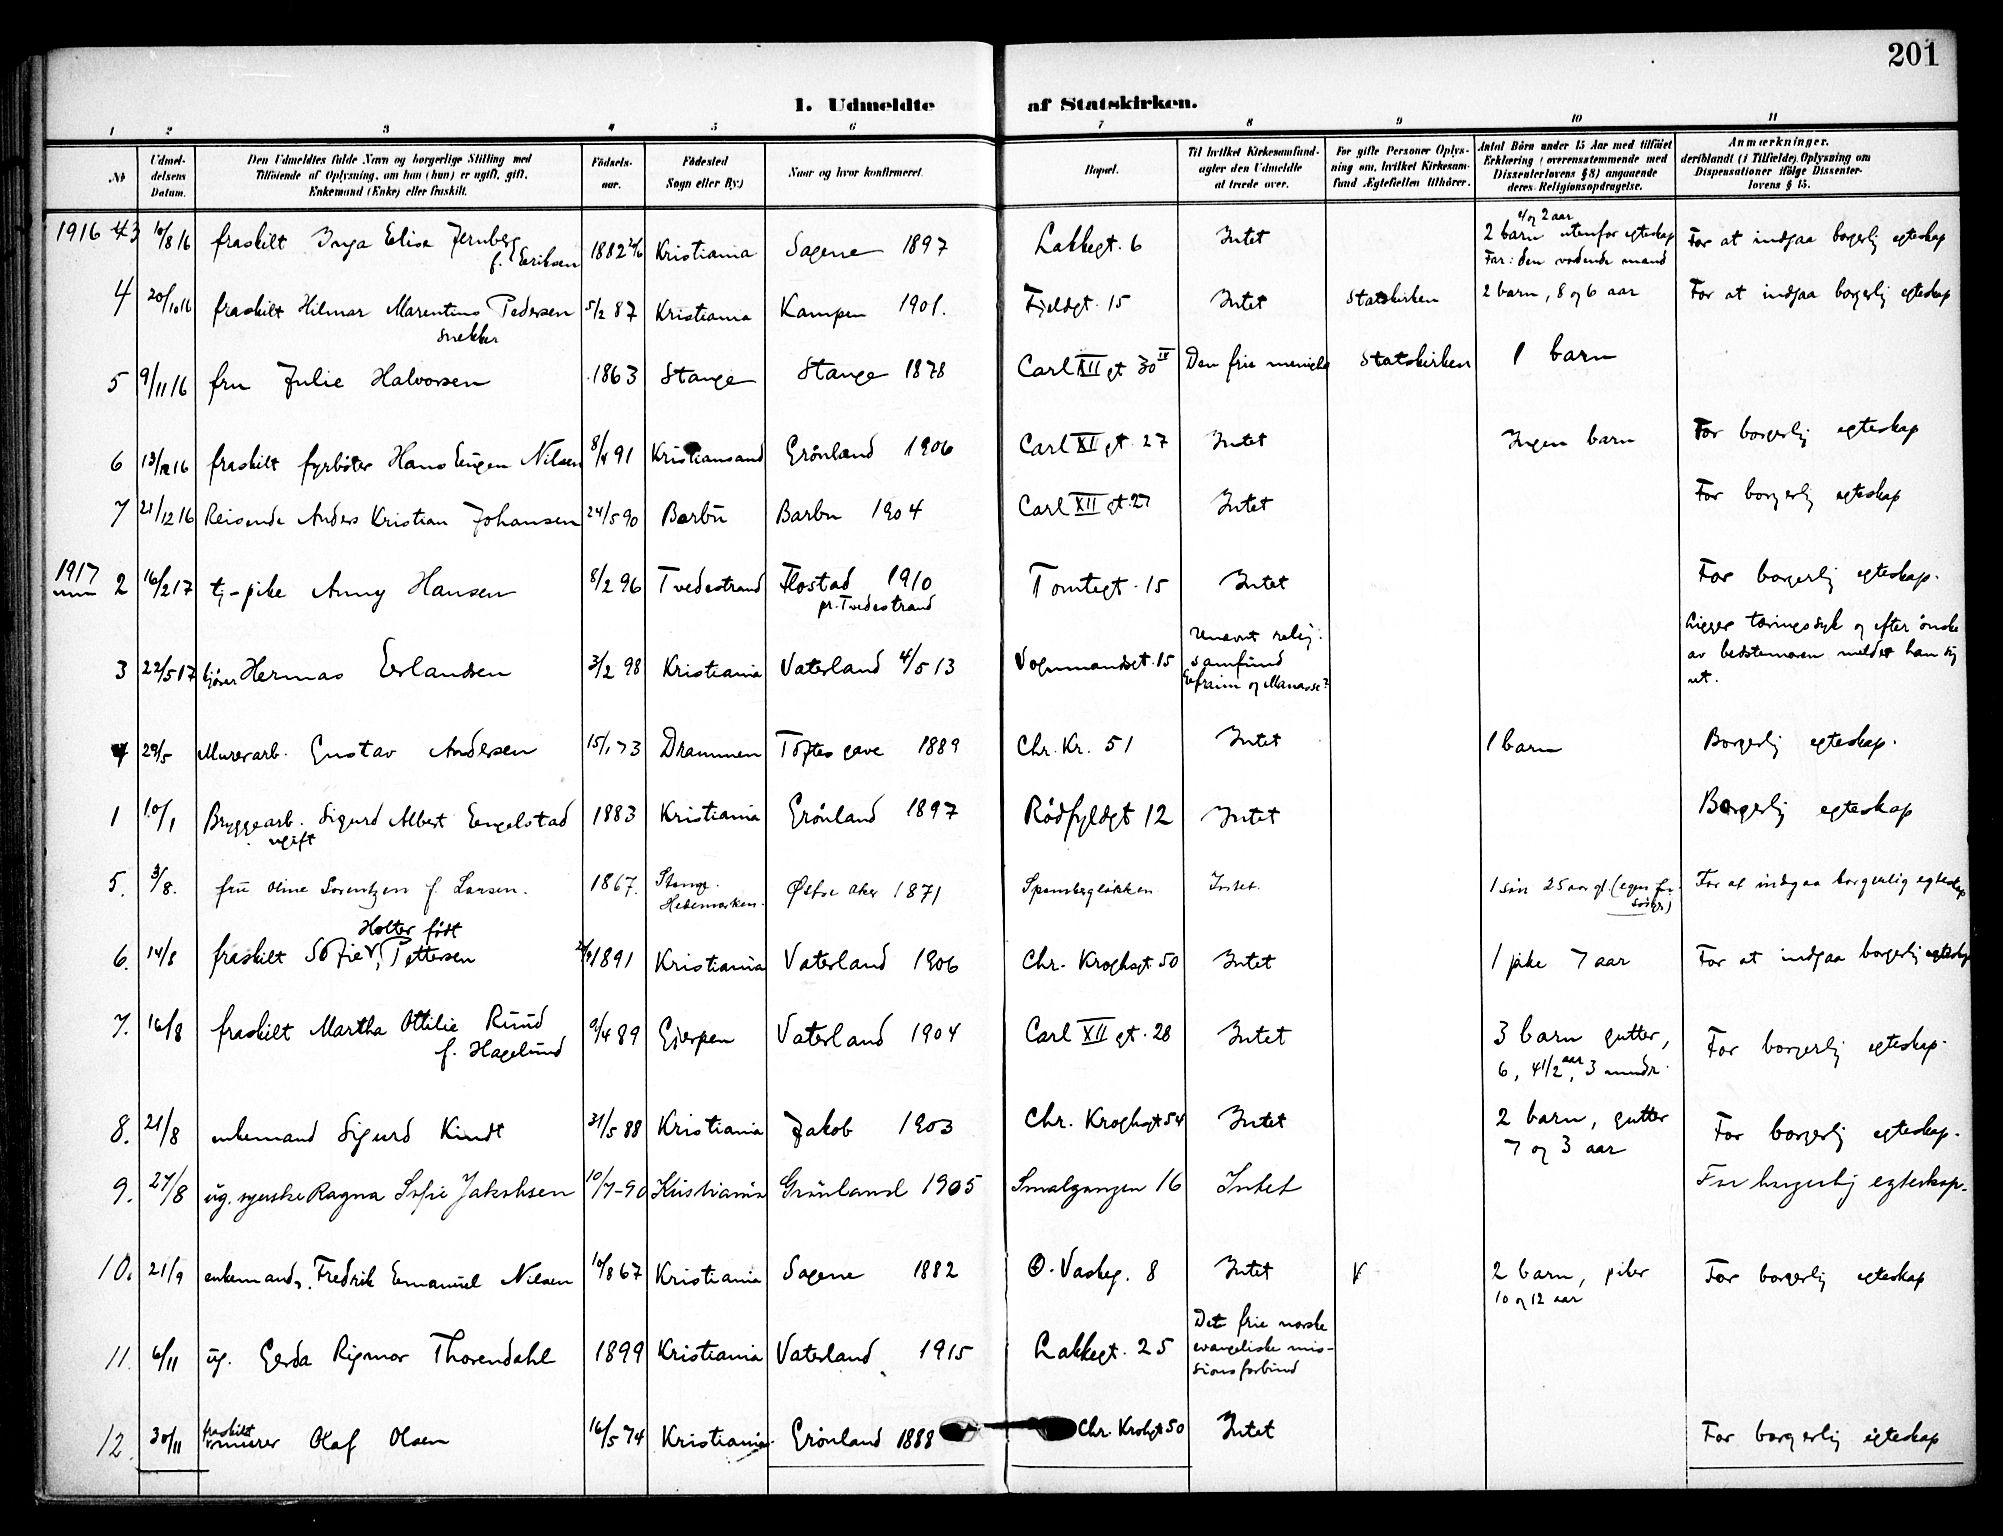 201
I. Udmeldte af Statskirken.
1 2 3 4 5 6 7 8 9 10 11
No
Udmel-
delsens
Datum.
Den Udmeldtes fulde Navn og borgerlige Stilling med
Tilføiende af Oplysning, om han (hun) er ugift, gift,
Enkemand (Enke) eller fraskilt.
Fødsels-
aar.
Fødested
Sogn eller By.)
Naar og hvor konfirmeret.
Bopæl.
Til hvilket Kirkesamfund-
agter den Udmeldte
at træde over.
For gifte Personer Oplys-
ning om, hvilket Kirkesam-
fund Ægtefællen tilhører.
Antal Børn under 15 Aar med tilføiet
Erklæring (overensstemmende med
Dissenterlovens § 8) angaaende
deres Religionsopdragelse.
Anmærkninger,
deriblandt (i Tilfælde) Oplysning om
Dispensationer ifølge Dissenter-
lovens § 15.
1916 3 10/8 16 fraskilt Inga Elise Jernberg f. Eriksen 1882 Kristiania Sagene 1897 Lakkegt. 6 Intet 4 og 2 aar 2 barn utenfor egteskap For at indgaa borgerlig egteskap
Far: den vordende mand
4 20/10 16 fraskilt Hilmar Marentius Pedersen 5/2 87 Kristiania Kampen 1901. Fjeldgt. 15 Intet Statskirken 2 barn, 8 og 6 aar For at indgaa borgerlig egteskap
snekker
5 9/11 16 fru Julie Halvorsen 1863 Stange Stange 1878 Carl XII gt 30 IV Den frie menighe Statskirken 1 barn
6 13/12 16 fraskilt fyrbøter Hans Eugen Nilsen 8/4 91 Kristiansand Grønland 1906 Carl XII gt. 27 Intet Ingen barn For borgerlig egteskap
7 21/12 16 Reisende Anders Kristian Johansen 24/5 90 Barbu Barbu 1904 Carl XII gt. 27 Intet For borgerlig egteskap
1917 2 16/2 17 tj-pike Anny Hansen 8/2 96 Tvedestrand Flostad 1910 Tomtegt. 15 Intet For borgerlig egteskap.
pr. Tvedestrand
3 22/5 17 Hermas Erlandsen 3/2 98 Kristiania Vaterland 4/5 13 Vognmandsgt. 15 unævnt relig. samfund Efraim og Manasse? Ligger tæringssyk og efter ønske
av bedstemoren meldt han sig
ut.
4 29/5 Murerarb. Gustav Andersen 15/1 73 Drammen Toftes gave 1889 Chr. Kr. 51 Intet 1 barn Borgerlig egteskap.
1 10/1 Bryggearb. Sigurd Albert Engelstad 1883 Kristiania Grønland 1897 Rødfyldgt 12 Intet Borgerlig egteskap
ugift
5. 3/8. fru Oline Sorentzen f. Larsen. 1867. Stange. Hedemarken. Østre Aker 1871 Spansbergløkken Intet. 1 søn 25 aar gl. (egen for sørger) For at indgaa borgerlig egteskap
Holter født
6. 14/8 fraskilt Sofie, Pettersen 1891 Kristiania Vaterland 1906 Chr. Kroghsgt 50 Intet 1 pike 7 aar For at indgaa borgerlig egteskap
7. 16/8 fraskilt Martha Ottilie Ruud 9/4 89 Gjerpen Vaterland 1904 Carl XII gt. 28 Intet 3 barn gutter, For borgerlig egteskap.
f. Hagelund 6, 4 1/2 aar, 3 mndr.
8. 21/8 enkemand Sigurd Kindt 31/5 88 Kristiania Jakob 1903 Chr. Kroghsgt 54 Intet 2 barn, gutter For borgerlig egteskap.
7 og 3 aar
9. 27/8 ug. syerske Ragna Sofie Jakobsen 10/7-90 Kristiania Grønland 1905 Smalgangen 16 Intet For borgerlig egteskap.
10. 21/9 enkemand, Fredrik Emanuel Nilsen 10/8 67 Kristiania Sagene 1882 Ø. Vaskeg. 8 Intet 2 barn, piker For borgerlig egteskap
10 og 12 aar
11. 6/11 ug. Gerda Rigmor Thorendahl 1899 Kristiania Vaterland 1915 Lakkegt. 25 Det frie norske
evangeliske mis-
sionsforbund
12. 30/11 fraskilt Olaf Olsen 16/5 74 Kristiania Grønland 1888 Chr. Kroghsgt 50 Intet For borgerlig egteskap